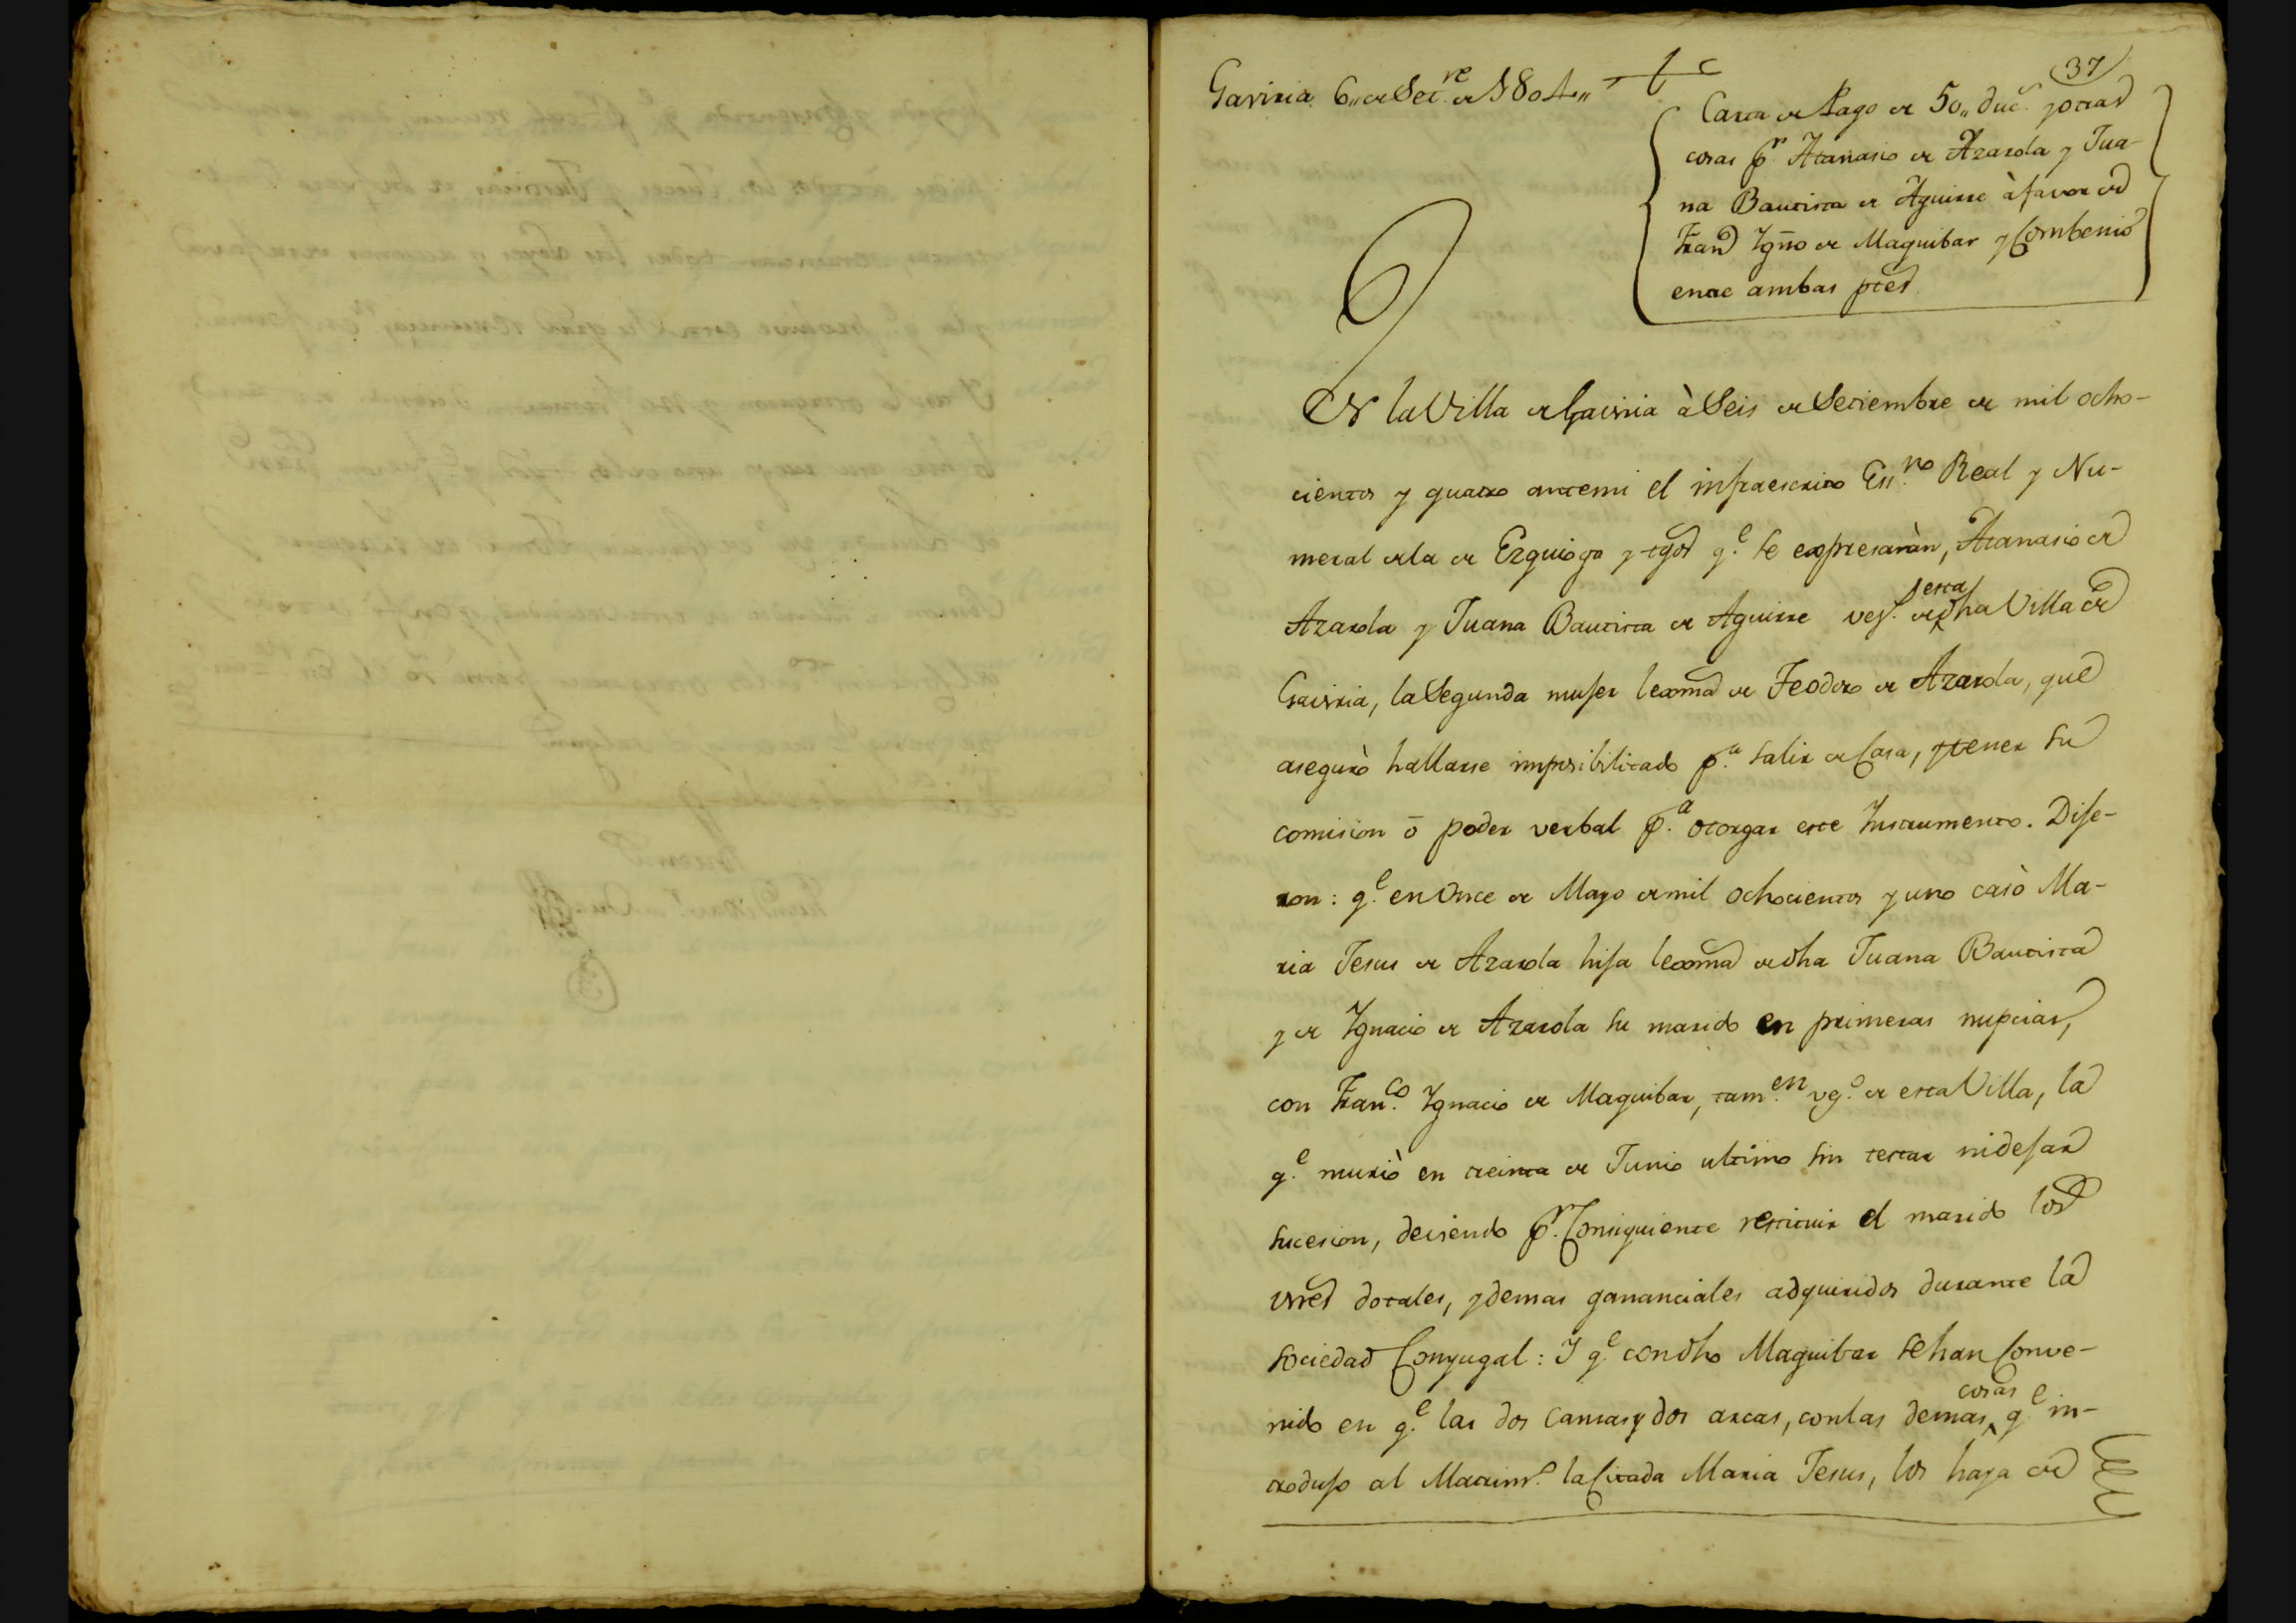 37
Gaviria 6,, de Set.re de 1804,,
Carta de Pago de 50,, duc.s y otras
cosas p.r Atanasio de Azarola y Jua-
na Bautista de Aguirre à favor de
Fran.co Ygn̄o de Maguibar y Combenio
entre ambas ptes
En la Villa de Gaviria à Seis de Setiembre de mil ocho-
cientos y quatro antemi el infraescrito Ess.no Real y Nu-
meral dela de Ezquioga y tgos q.e se expresaràn, Atanasio de
Azarola y Juana Bautista de Aguirre vez.s de
esta
dha Villa de
Gaviria, la Segunda mujer lexma de Feodoro de Azarola, que
aseguró hallarse imposibilitado p.a salir de Casa, y tener su
comision ō poder verbal p.a otorgar este Instrumento. Dije-
ron: q.e en Once de Mayo de mil ochocientos y uno casò Ma-
ria Jesus de Azarola hija lexma de dha Juana Bautista
y de Ygnacio de Azarola su marido en primeras nupcias,
con Fran.co Ygnacio de Maguibar, tam.en vez.o de esta Villa, la
q.e muriò en treinta de Junio ultimo sin testar ni dejar
sucesion, deviendo p.r Consiguiente restituir el marido los
vnes dotales, y demas gananciales adquiridos durante la
sociedad Conyugal: Y q.e con dho Maguibar se han Conve-
nido en q.e las dos camas y dos arcas, con las demas
cosas
q.e in-
trodujo al Matrim.o la Citada Maria Jesus, los haya de